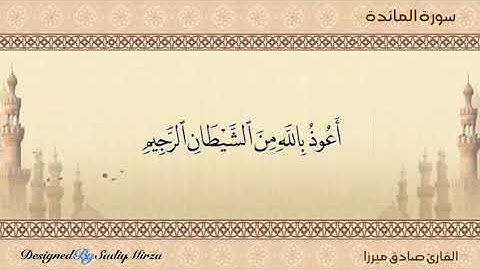 سورة المائدة
أَعُوذُ بِاللَّهِ مِنَ ٱلشَّيْطَانِ ٱلرَّجِيمِ
DesignedBy Sadiq Mirza
القارئ صادق ميرزا